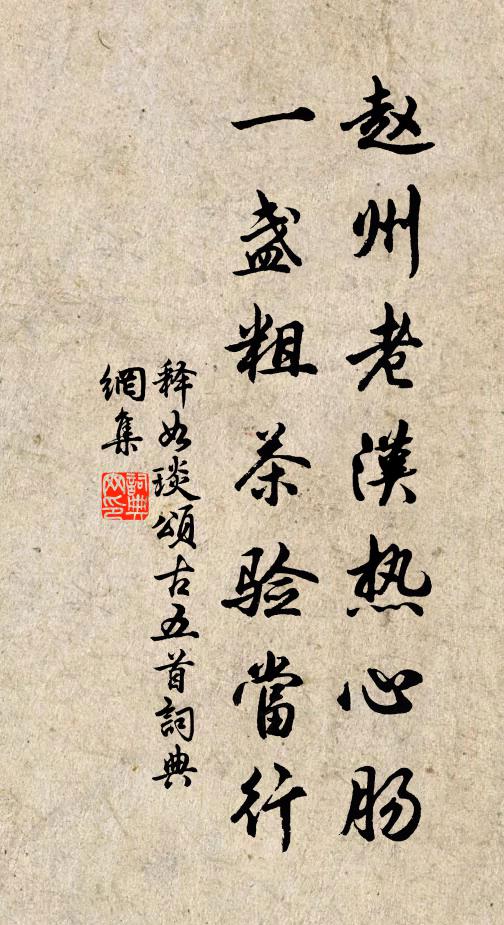 赵州老漢热心肠
一盏粗茶验當行
释如琰頌古五首詞典
網集
詞典網印